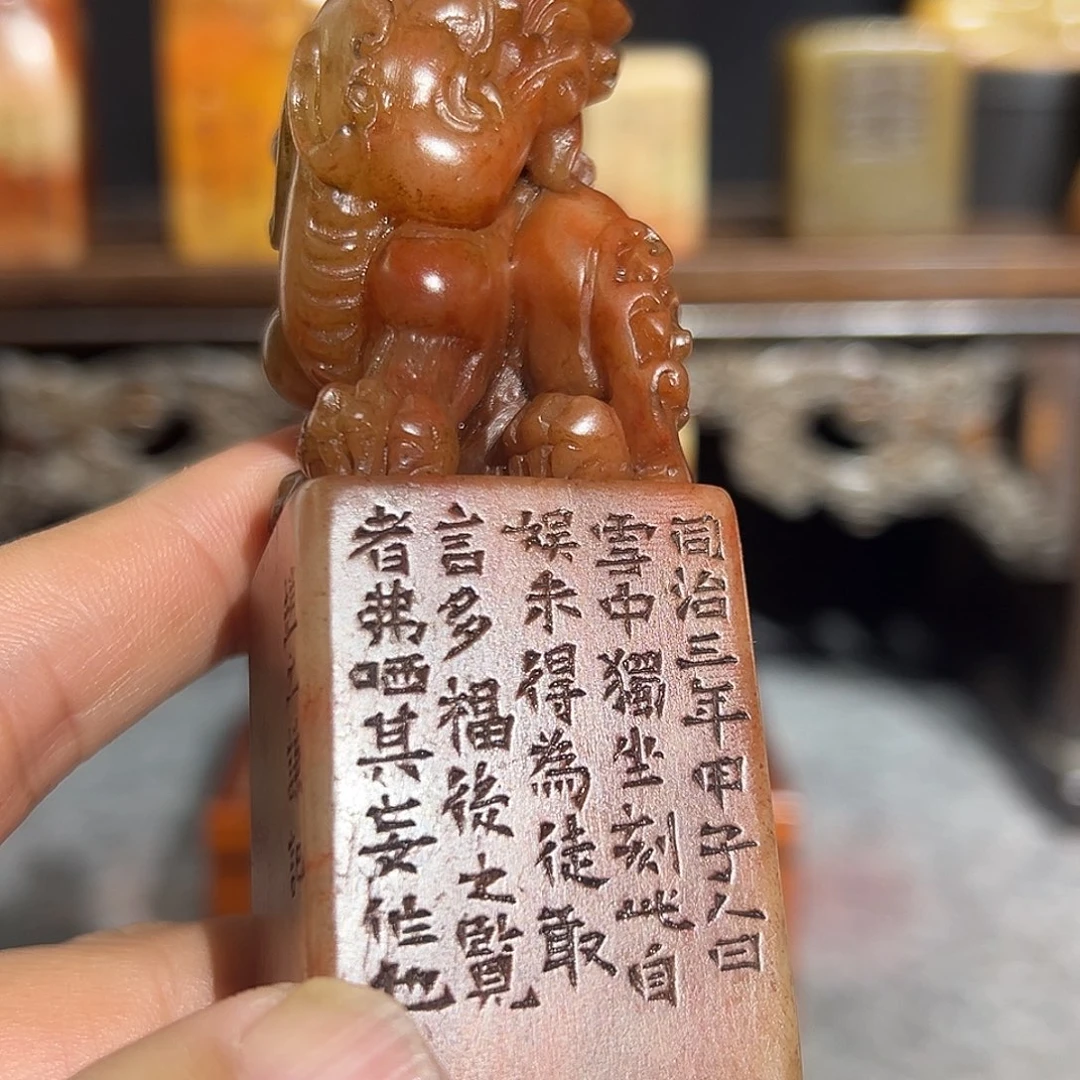 同治三年甲子人日
雪中獨坐刻此自
娛未得為徒敢
言多福後之覽
者弗哂其妄作也